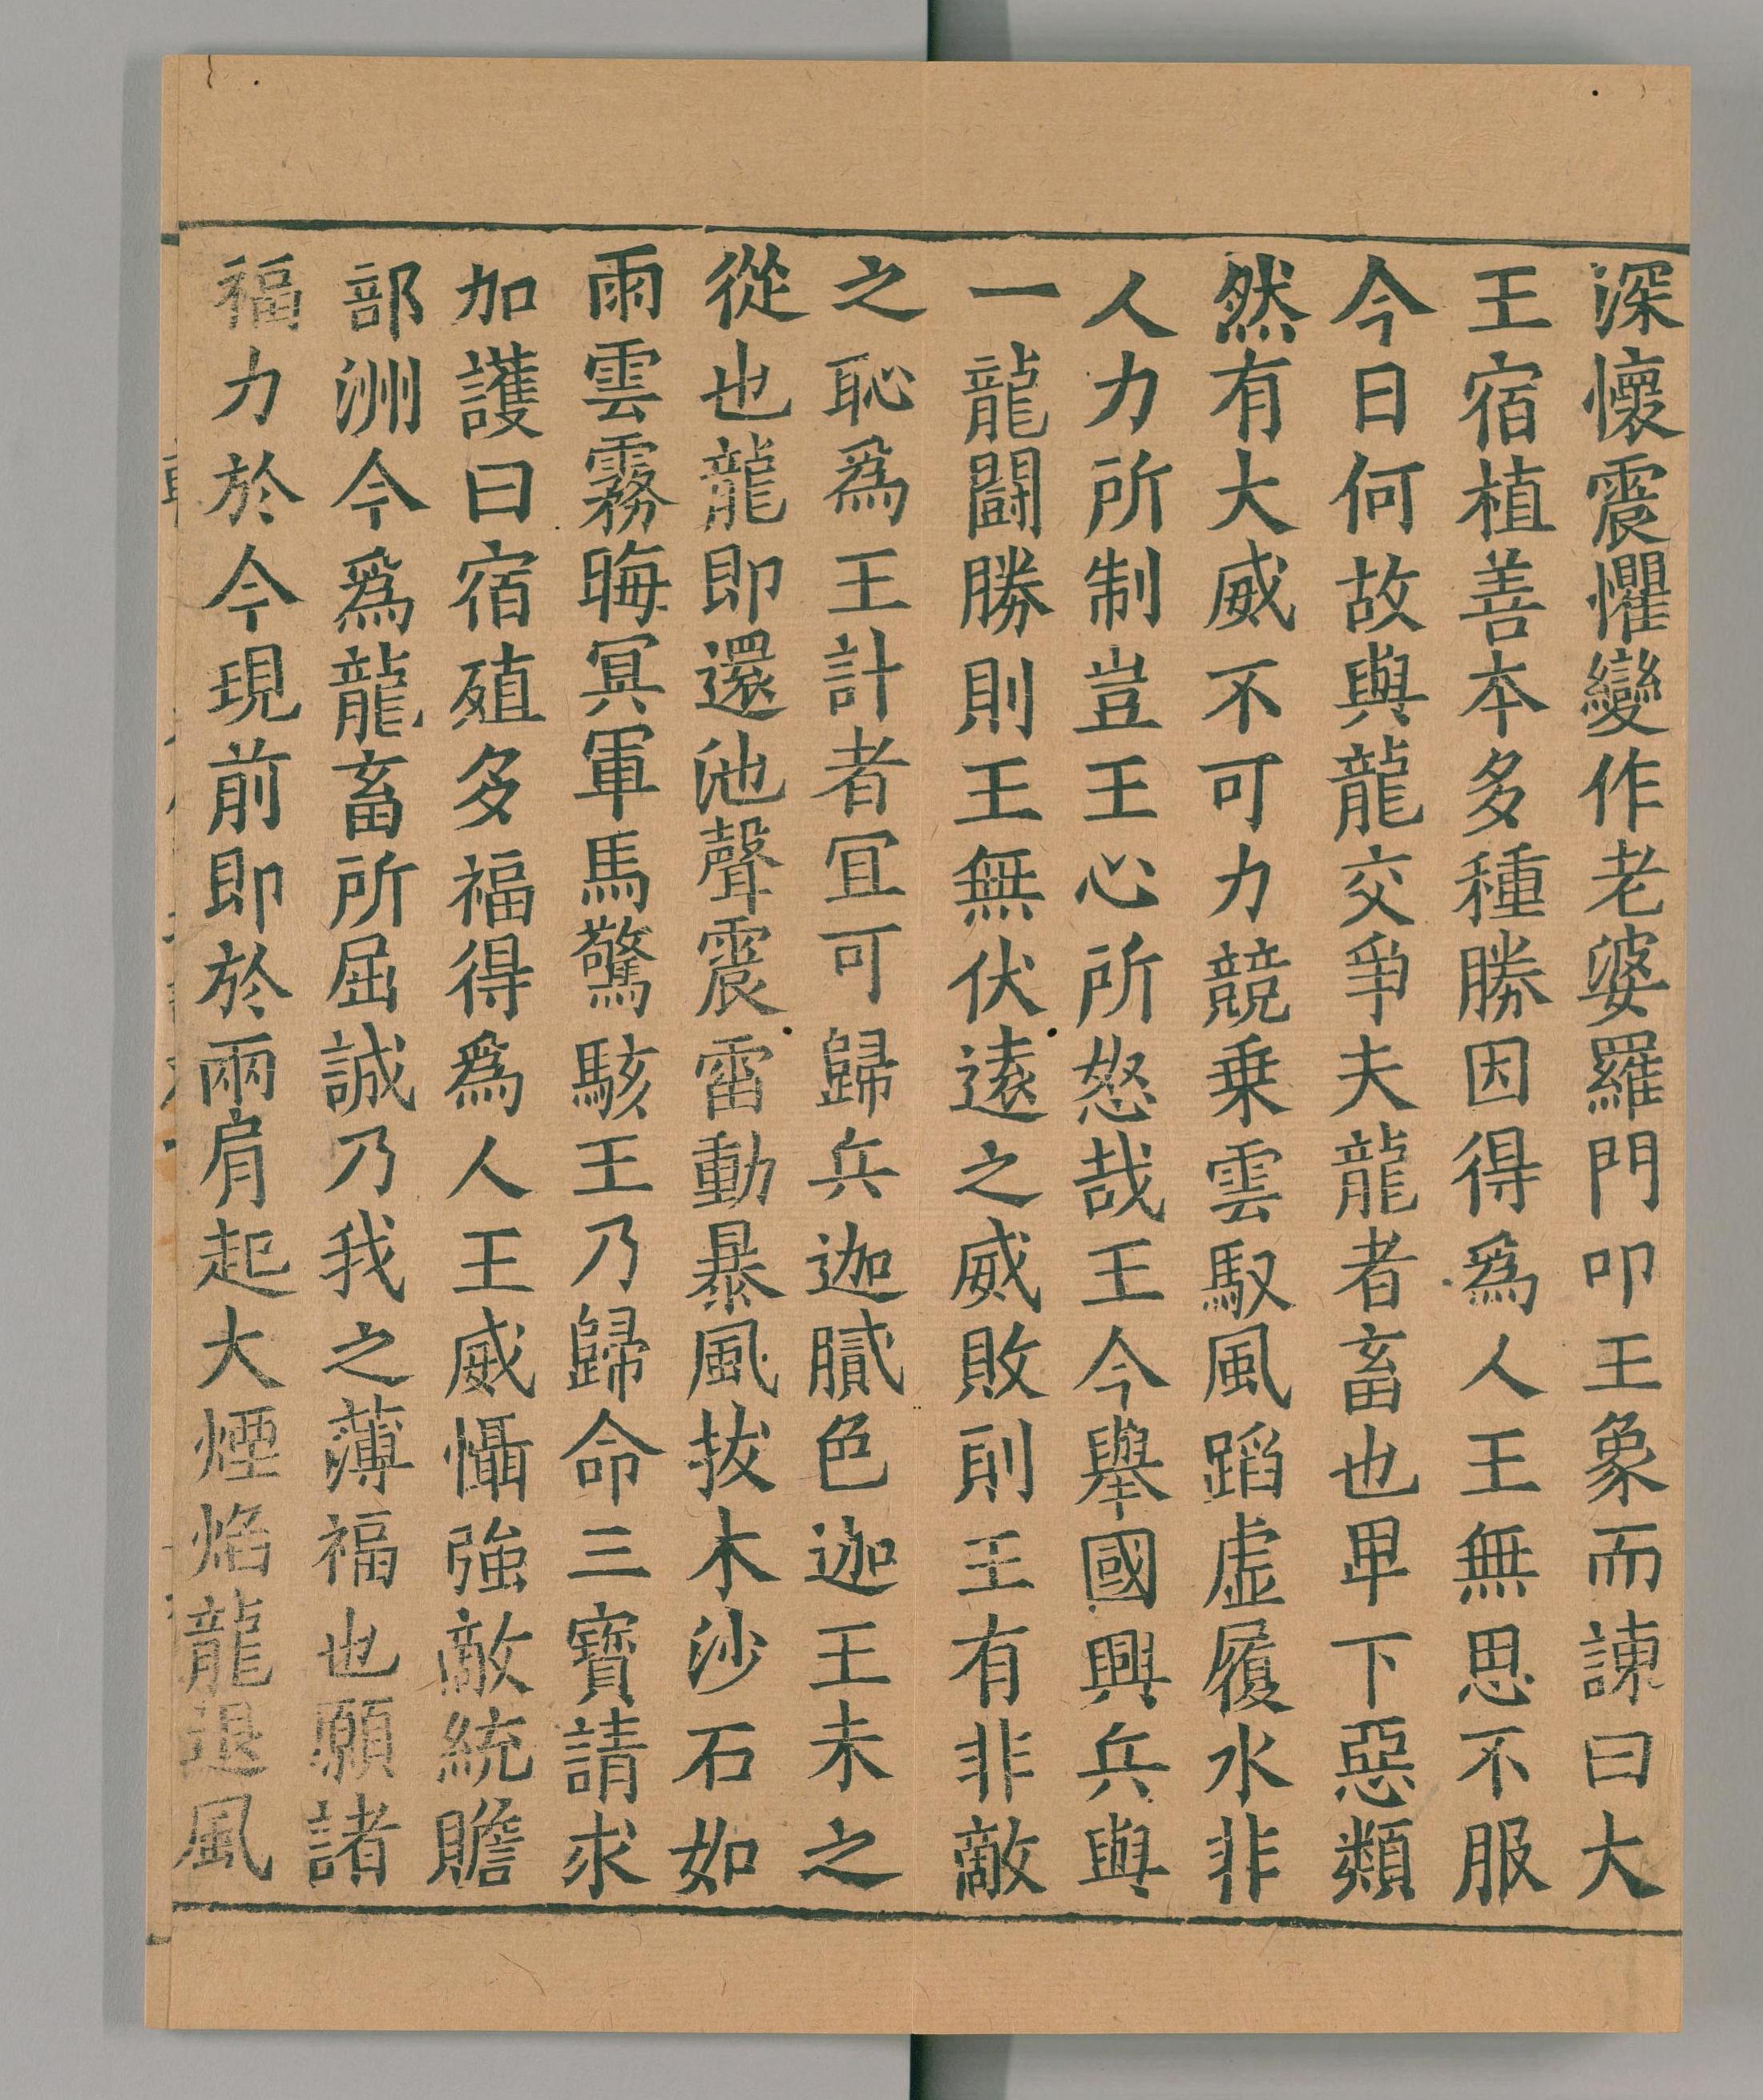 深懷震懼變作老婆羅門叩王象而諫曰大
王宿植善本多種勝因得爲人王無思不服
今日何故與龍交爭夫龍者畜也卑下惡類
然有大威不可力競乗雲馭風蹈虛履水非
人力所制豈王心所怒哉王今舉國興兵與
一龍鬪勝則王無伏遠之威敗則王有非敵
之恥爲王計者冝可歸兵迦膩色迦王未之
從也龍即還池聲震雷動暴風拔木沙石如
雨雲霧晦冥軍馬驚駭王乃歸命三寶請求
加護曰宿殖多福得爲人王威懾強敵統贍
部洲今爲龍畜所屈誠乃我之薄福也願諸
福力於今現前即於兩肩起大煙焰龍退風